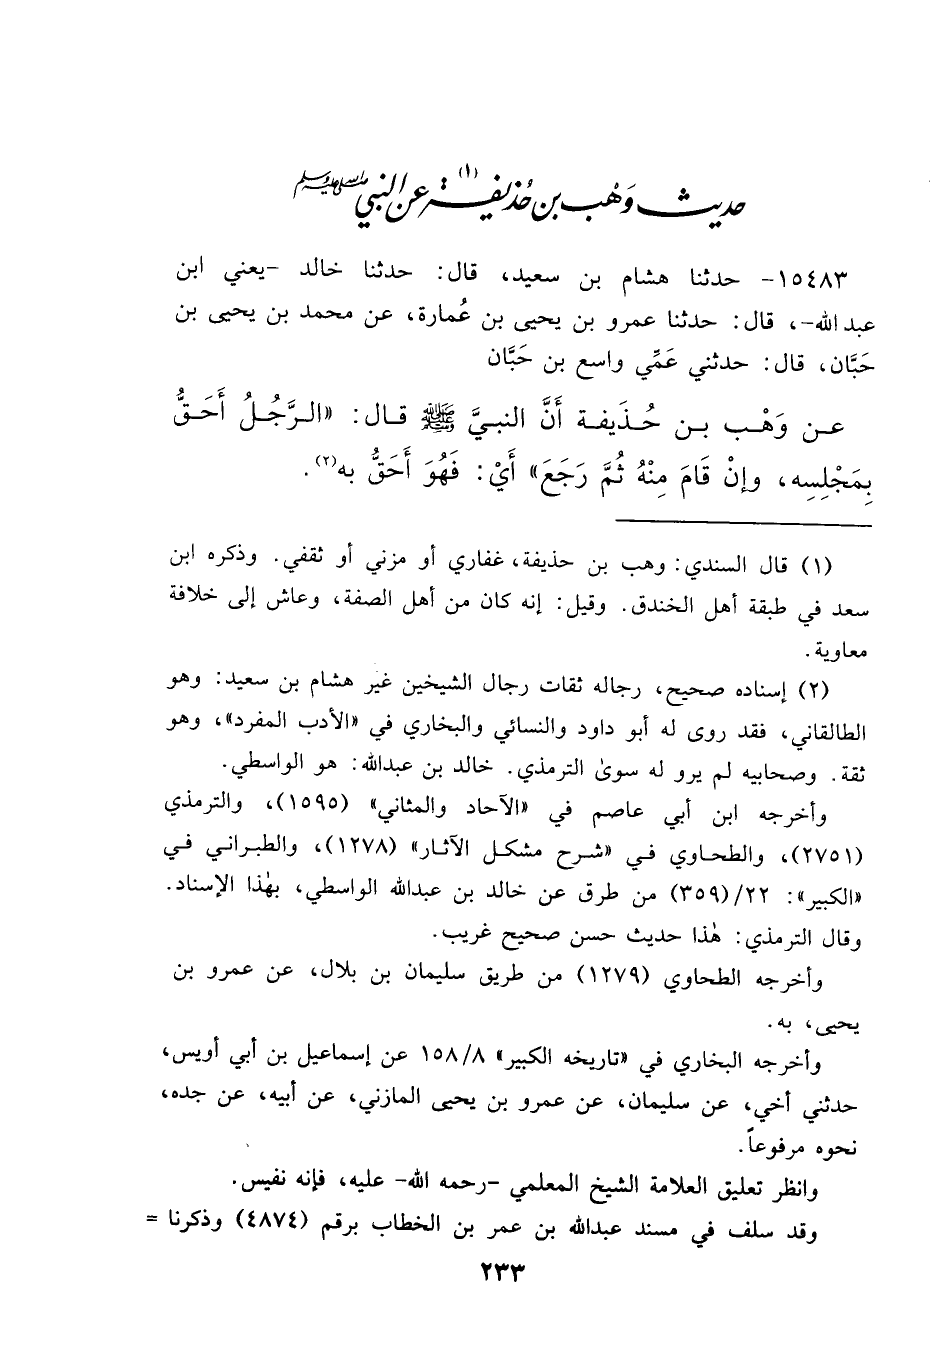 حديث وَهْب بن حُذيفة(١) عن النبي صلى الله عليه وسلم
١٥٤٨٣- حدثنا هشام بن سعيد، قال: حدثنا خالد -يعني ابن
عبدالله-، قال: حدثنا عمرو بن يحيى بن عُمارة، عن محمد بن يحيى بن
حَبَّان، قال: حدثني عَمِّي واسع بن حَبَّان
عـن وَهْـب بـن حُـذَيفـة أَنَّ النبـيَّ ﷺ قـال: «الـرَّجُـلُ أَحَـقُّ
بِمَجْلِسِه، وإنْ قَامَ مِنْهُ ثُمَّ رَجَعَ» أَيْ: فَهُوَ أَحَقُّ به(٢).
(١) قال السندي: وهب بن حذيفة، غفاري أو مزني أو ثقفي. وذكره ابن
سعد في طبقة أهل الخندق. وقيل: إنه كان من أهل الصفة، وعاش إلى خلافة
معاوية.
(٢) إسناده صحيح، رجاله ثقات رجال الشيخين غير هشام بن سعيد: وهو
الطالقاني، فقد روى له أبو داود والنسائي والبخاري في «الأدب المفرد»، وهو
ثقة. وصحابيه لم يرو له سوىٰ الترمذي. خالد بن عبدالله: هو الواسطي.
وأخرجه ابن أبي عاصم في «الآحاد والمثاني» (١٥٩٥)، والترمذي
(٢٧٥١)، والطحـاوي فـي «شـرح مشكـل الآثـار» (١٢٧٨)، والطبـرانـي فـي
«الكبير»: ٢٢/(٣٥٩) من طرق عن خالد بن عبدالله الواسطي، بهٰذا الإسناد.
وقال الترمذي: هٰذا حديث حسن صحيح غريب.
وأخرجه الطحاوي (١٢٧٩) من طريق سليمان بن بلال، عن عمرو بن
يحيى، به.
وأخرجه البخاري في «تاريخه الكبير» ١٥٨/٨ عن إسماعيل بن أبي أويس،
حدثني أخي، عن سليمان، عن عمرو بن يحيى المازني، عن أبيه، عن جده،
نحوه مرفوعاً.
وانظر تعليق العلامة الشيخ المعلمي -رحمه الله- عليه، فإنه نفيس.
وقد سلف في مسند عبدالله بن عمر بن الخطاب برقم (٤٨٧٤) وذكرنا =
٢٣٣